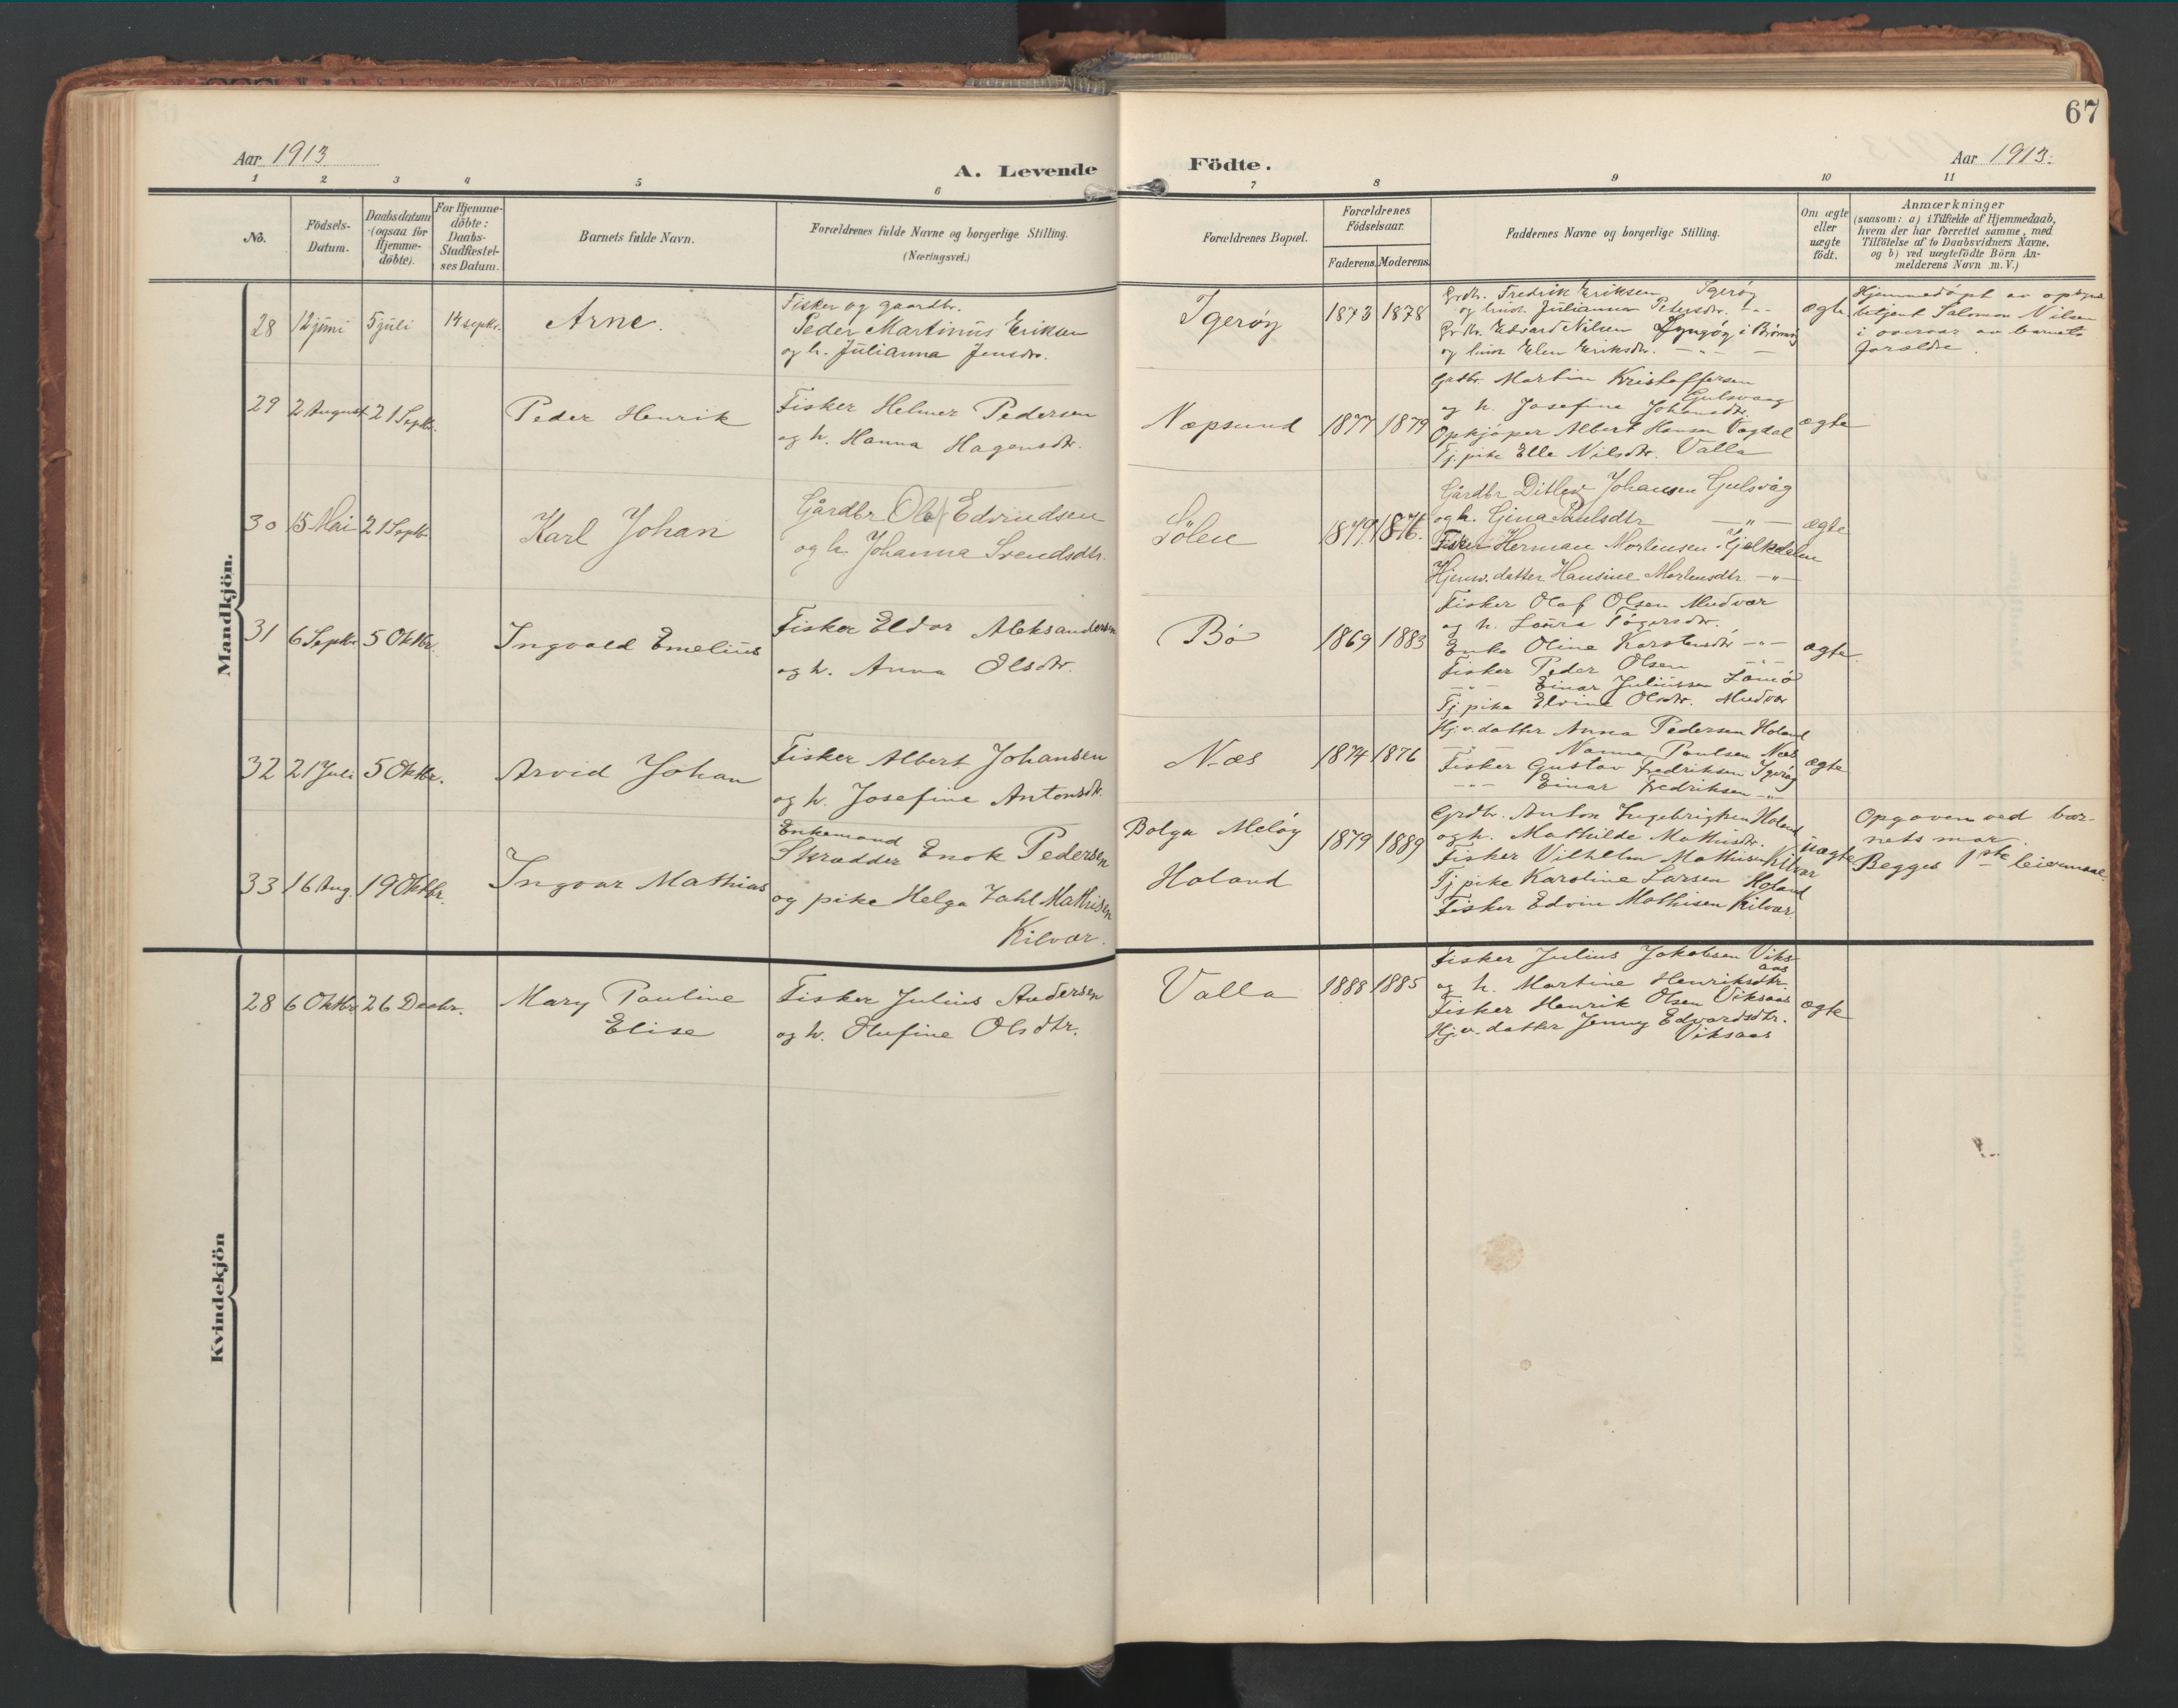 67
Aar 1913
A. Levende Födte.
Aar 1913.
1 2 3 4 5 6 7 8 9 10 11
No.
Födsels-
Datum.
Daabsdatum
(ogsaa for
Hjemme-
döbte).
For Hjemme-
döbte:
Daabs-
Stadfæstel-
ses Datum.
Barnets fulde Navn.
Forældrenes fulde Navne og borgerlige Stilling.
(Næringsvei.)
Forældrenes Bopæl.
Forældrenes
Födselsaar.
Faderens. Moderens.
Faddernes Navne og borgerlige Stilling.
Om ægte
eller
uægte
födt.
Anmærkninger
(saasom: a) i Tilfælde af Hjemmedaab,
hvem der har forrettet samme, med
Tilföielse af to Daabsvidners Navne.
og b) ved uægtefödte Börn An-
melderens Navn m. V.)
Mandkjön.
28 12 juni 5 juli 14 septr. Arne.
Fisker og gaardbr.
Peder Martinus Eriksen
og h. Julianna Jensdtr.
Igerøy 1873 1878
Grdbr. Fredrik Eriksen Igerøy
og hust. Julianna Petersdtr. -"-
Grdbr. Edvard Nilsen Lyngøy i Brønnøy
og hust Elen Eriksdtr. -"-
ægte
Hjemmedøpt av opsyns
betjent Salomon Nilsen
i overvær av barnets
forældre.
29 2 August 21 Septbr. Peder Henrik
Fisker Helmer Pedersen
og h. Hanna Hagensdtr.
Næpsund 1877 1879
Grdbr. Martin Kristoffersen
Gulsvaag
og h. Josefine Johansdtr.
Opkjøper Albert Hansen Vogdal
Tj. pike Elle Nilsdtr. Valla
ægte
30 15 Mai 21 Septbr. Karl Johan
Gårdbr Olaf Edvindsen
og h. Johanna Svendsdtr.
Sölen 1879. 1876.
Gårdbr Ditlev Johansen Gulsvåg
og h. Gina Paulsdtr -"-
Fisker Herman Mortensen Tjelkdalen
Hjemv. datter Hansine Mortensdtr. -"-
ægte
31 6 Septbr. 5 Oktbr. Ingvald Emelius
Fisker Eldor Aleksandersen
og h. Anna Olsdtr.
Bø 1869 1883
Fisker Olaf Olsen Mudvær
og h. Laura Tögersdtr.
Enke Oline Karstensdtr -"-
Fisker Peder Olsen -"-
-"- Einar Juliussen Lamø
Tj. pike Elvine Olsdtr. Mudvær
ægte
32 21 Juli 5 Oktbr. Arvid Johan
Fisker Albert Johansen
og h. Josefine Antonsdtr.
Næs 1874 1876
Hj.v. datter Anna Pedersen Holand
-"- Nanna Paulsen Næs
Fisker Gustav Fredriksen Igerøy
-"- Einar Fredriksen -"-
ægte
33 16 Aug. 19 Oktbr. Ingvar Mathias
Enkemand
Skrædder Enok Pedersen
og pike Helga Dahl Mathisen
Kilvær.
Bolga Meløy
Holand
1879 1889
Grdbr. Anton Ingebrigtsen Holand
og h. Mathilde Mathisdtr.
Fisker Vilhelm Mathisen Kilvær
Tj. pike Karoline Larsen Holand
Fisker Edvin Mathisen Kilvær.
uægte
Opgaven ved bar-
nets mor.
Begges 1ste leiermaal.
Kvindekjön
28 6 Oktbr. 26 Decbr. Mary Pauline
Elise
Fisker Julius Andersen
og h. Olufine Olsdtr.
Valla 1888 1885
Fisker Julius Jakobsen Viks-
aas
og h. Martine Henriksdtr.
Fisker Henrik Olsen Viksaas
Hj.v. datter Jenny Edvardsdtr.
Viksaas
ægte